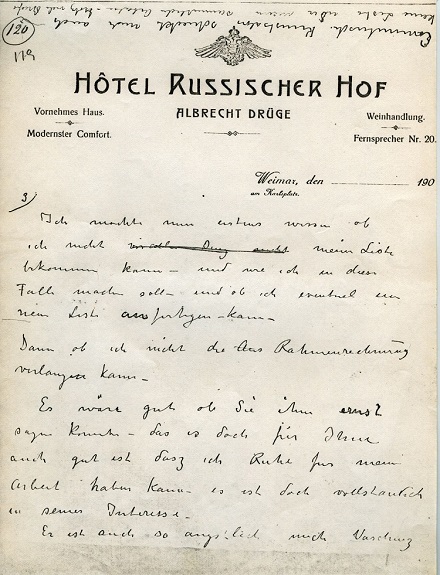 120
119
HÔTEL RUSSISCHER HOF
ALBRECHT DRÜGE
Vornehmes Haus.
Modernster Comfort.
Weinhandlung.
Fernsprecher Nr. 20.
Weimar, den 190
am Karlsplatz.
3)
Ich möchte nun erstens wissen ob
ich nicht meine Liste
bekommen kann – und wie ich in diesem
Falle machen soll – und ob ich eventuel eine
neue Liste anfertigen – kann –
Dann ob ich nicht die Aus Rahmenrechnung
verlangen kann –
Es wäre gut ob Sie ihm ernst
sagen könnten – das es doch für Ihnen
auch gut ist dasz ich Ruhe für meine
Arbeit haben kann es ist doch vollständich
in seines Interesse –
Er ist auch so ängstlich mich